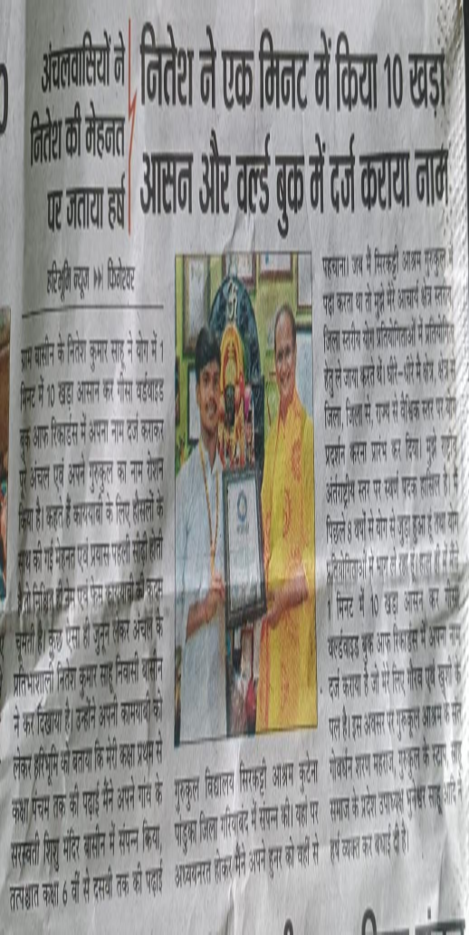 अंचलवासियों ने
नितेश की मेहनत
पर जताया हर्ष
नितेश ने एक मिनट में किया 10 खड़ा
आसन और वर्ल्ड बुक में दर्ज कराया नाम
हरिभूमि न्यूज फिंगेश्वर
ग्राम बासीन के नितेश कुमार साहू ने योग में 1
मिनट में 10 खड़ा आसन कर गोल्स वर्ल्डवाइड
बुक आफ रिकार्ड्स में अपना नाम दर्ज कराकर
अंचल एवं अपने गुरुकुल का नाम रोशन
किया है। कहते हैं कामयाबी के लिए हौसलों के
साथ की गई मेहनत एवं प्रयास पहली सीढ़ी होती
चूमती है। कुछ ऐसा ही जुनून लेकर अंचल के
प्रतिभाशाली नितेश कुमार साहू निवासी बासीन
ने कर दिखाया है। उन्होंने अपने कामयाबी को
लेकर हरिभूमि को बताया कि मेरी कक्षा प्रथम से
कक्षा पंचम तक की पढ़ाई मैंने अपने गांव के
सरस्वती शिशु मंदिर बासीन में संपन्न किया,
तत्पश्चात कक्षा 6 वीं से दसवीं तक की पढ़ाई
गुरुकुल विद्यालय सिरकट्टी आश्रम कुटेना
पांडुका जिला गरियाबंद में संपन्न की। वहां पर
अध्ययनरत होकर मैंने अपने हुनर को वहीं से
पहचाना। जब मैं सिरकट्टी आश्रम गुरुकुल में
पढ़ा करता था तो मुझे मेरे आचार्य क्षेत्र स्तरीय
जिला स्तरीय योग प्रतियोगिताओं में
हेतु ले जाया करते थे। धीरे-धीरे मैं क्षेत्र, क्षेत्र से
जिला, जिला से राज्य में वैश्विक स्तर पर
प्रदर्शन करना प्रारंभ कर दिया। मुझे
अंतर्राष्ट्रीय स्तर पर स्वर्ण पदक हासिल है। मैं
पिछले 6 वर्षों से योग से जुड़ा हुआ हूं
1 मिनट में 10 खड़ा आसन कर
वर्ल्डवाइड बुक आफ रिकार्ड्स में अपना नाम
दर्ज कराया है जो मेरे लिए गौरव एवं खुशी के
पल है। इस अवसर पर गुरुकुल आश्रम के संत
गोवर्धन शरण महाराज, गुरुकुल के
समाज के प्रदेश उपाध्यक्ष साहू आदि ने
हर्ष व्यक्त कर बधाई दी है।